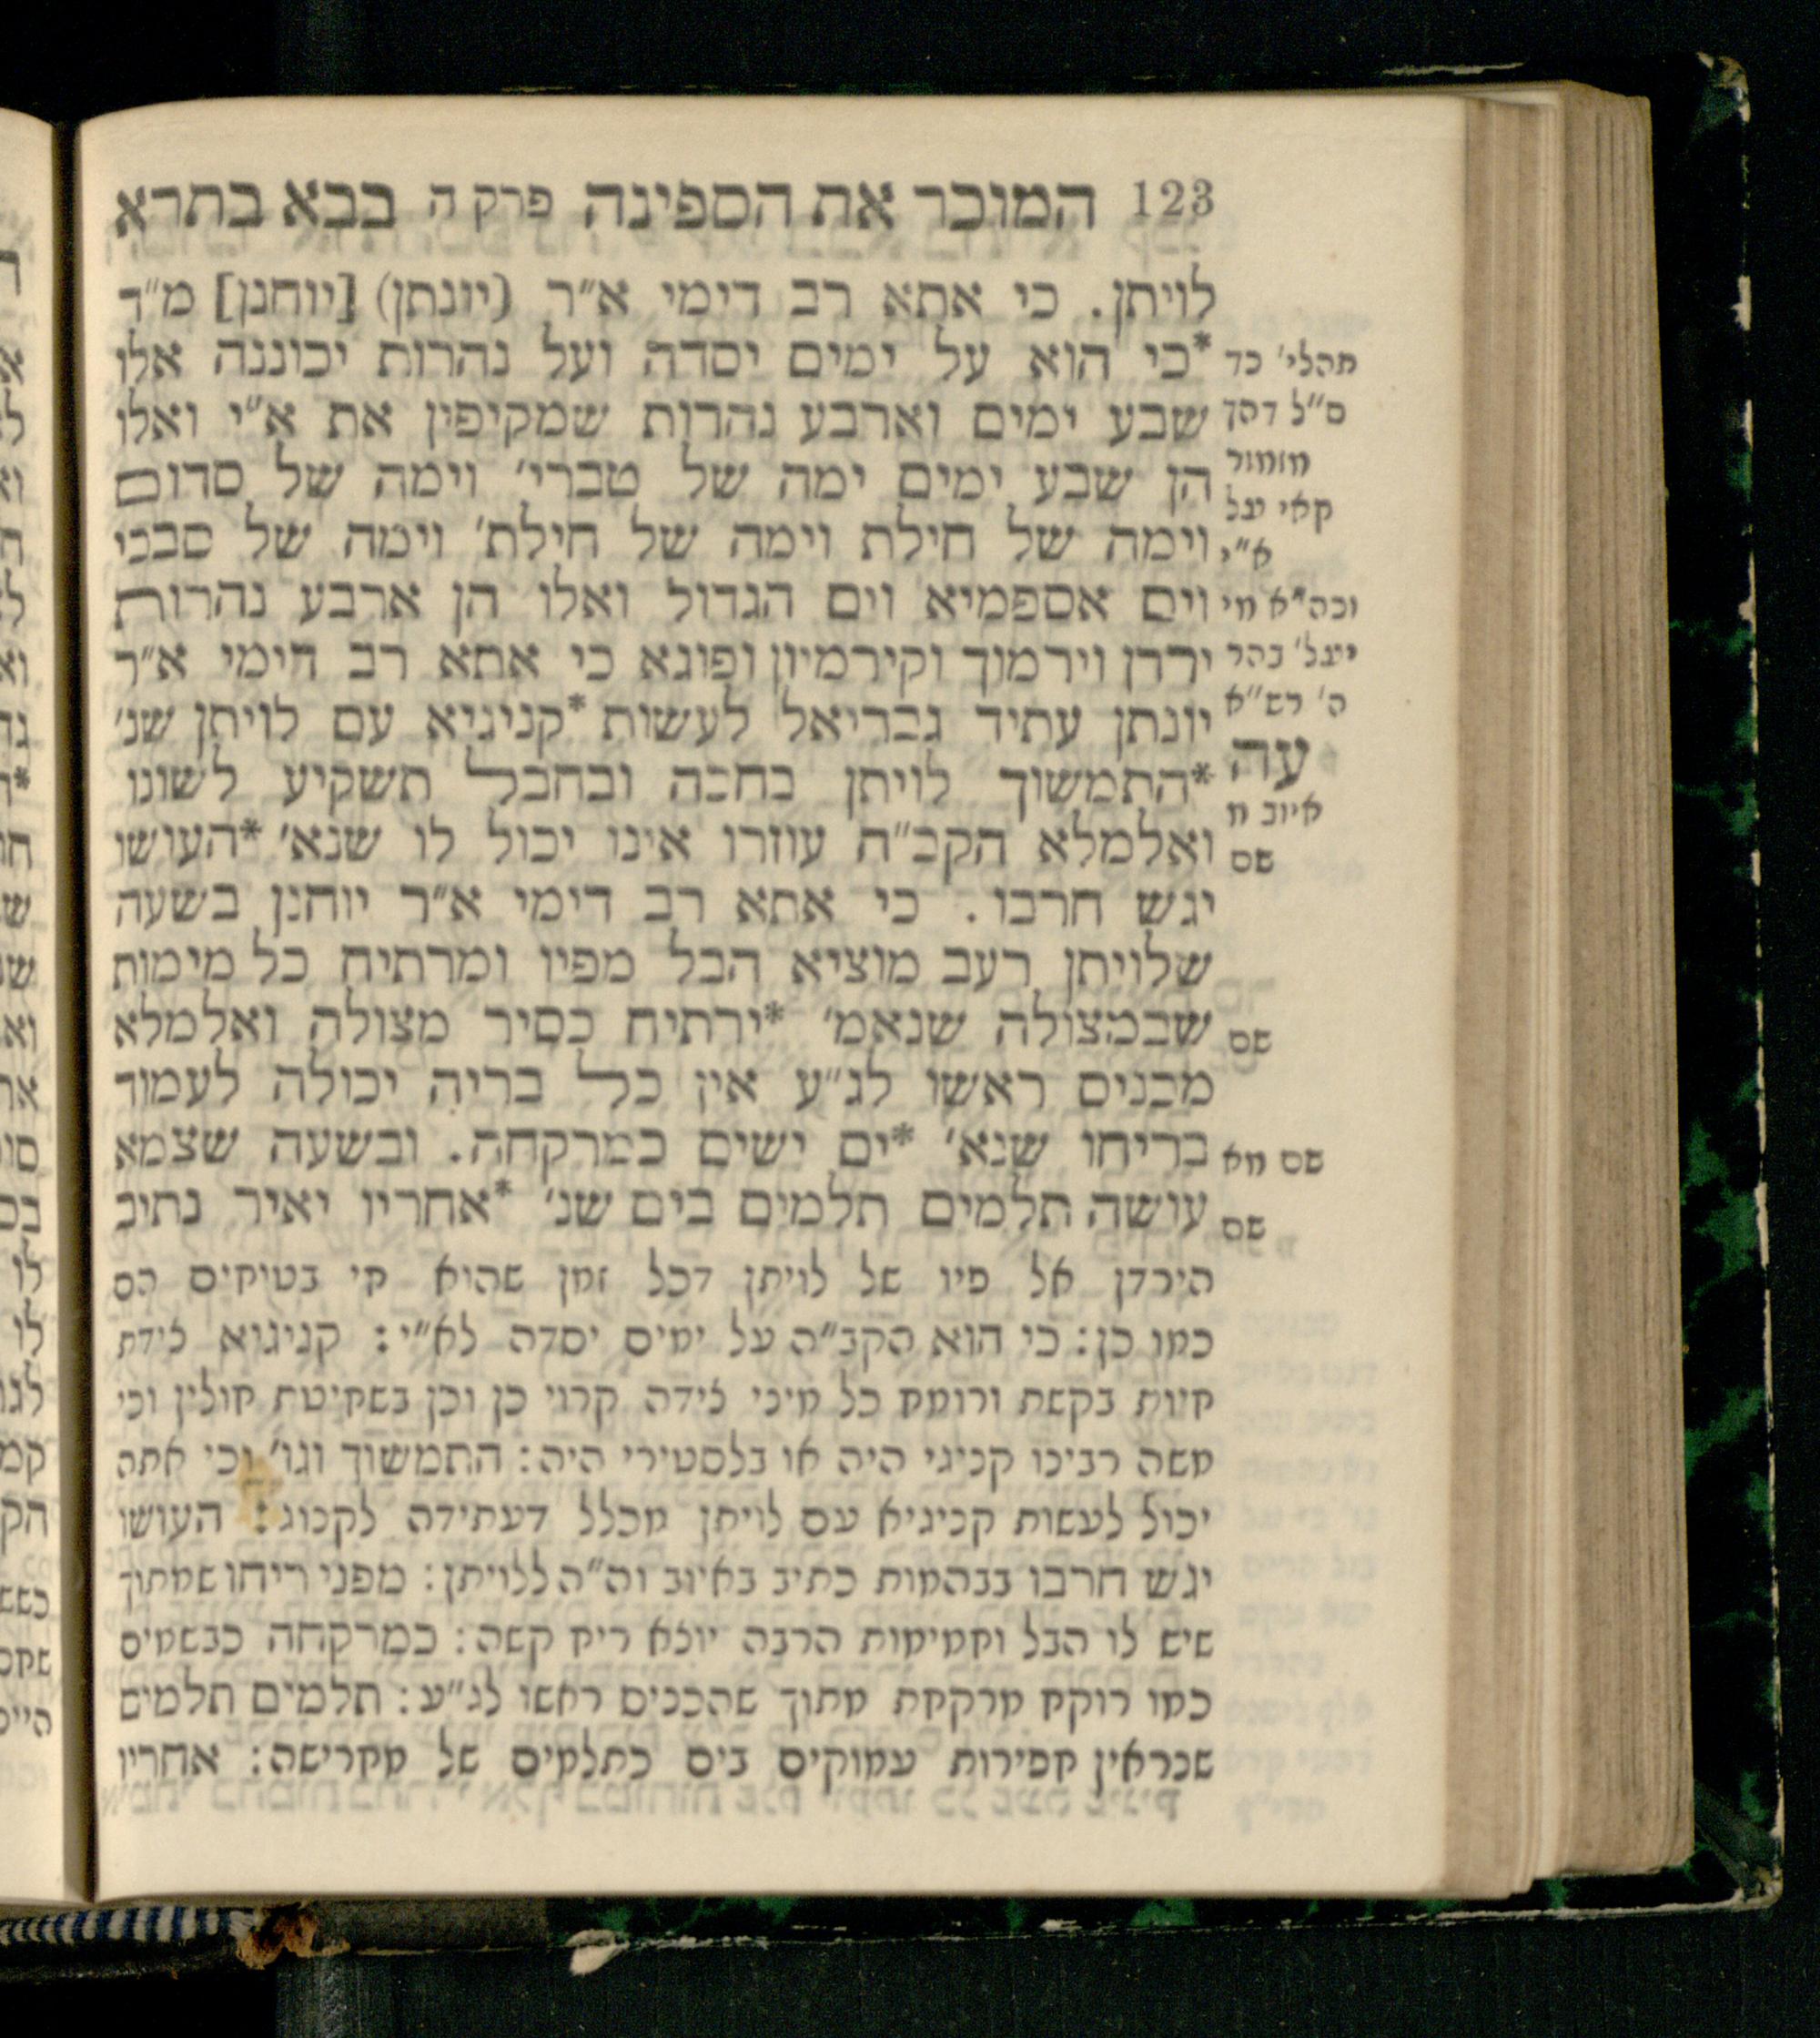 123 המוכר את הספינה פרק ה בבא בתרא
לויתן. כי אתא רב דימי א״ר (יונתן) [יוחנן] מ״ד
תהלי׳ כד
*כי הוא על ימים יסדה ועל נהרות יכוננה אלו
ס״ל דהך
שבע ימים וארבע נהרות שמקיפין את א״י ואלו
מזמור
הן שבע ימים ימה של טברי׳ וימה של סדום
קאי על
א״י
וימה של חילת וימה של חילת׳ וימה של סבכי
וכה״א מי
וים אספמיא וים הגדול ואלו הן ארבע נהרות
יעל׳ בהר
ירדן וירמוך וקירמיון ופוגא כי אתא רב דימי א״ר
ה׳ רש״א
יונתן עתיד גבריאל לעשות *קניגיא עם לויתן שנ׳
עה
*התמשוך לויתן בחכה ובחבל תשקיע לשונו
איוב מ
ואלמלא הקב״ה עוזרו אינו יכול לו שנא׳ *העושו
שם
יגש חרבו. כי אתא רב דימי א״ר יוחנן בשעה
שלויתן רעב מוציא הבל מפיו ומרתיח כל מימות
שבמצולה שנאמ׳ *ירתיח כסיר מצולה ואלמלא
שם
מכנים ראשו לג״ע אין כל בריה יכולה לעמוד
בריחו שנא׳ *ים ישים כמרקחה. ובשעה שצמא
שם מא
עושה תלמים תלמים בים שנ׳ *אחריו יאיר נתיב
שם
הירדן אל פיו של לויתן דכל זמן שהוא חי בטיחים הם
כמו כן: כי הוא הקב״ה על ימים יסדה לא״י: קניגיא צידת
חיות בקשת ורומח כל מיני צידה קרוי כן וכן בשחיטת חולין וכי
משה רבינו קניגי היה או בלסטירי היה: התמשוך וגו׳ וכי אתה
יכול לעשות קניגיא עם לויתן מכלל דעתידה לקנוג: העושו
יגש חרבו בבהמות כתיב באיוב וה״ה ללויתן: מפני ריחו שמתוך
שיש לו הבל וחמימות הרבה יוצא ריח קשה: כמרקחה כבשמים
כמו רוקח מרקחת מתוך שהכנים ראשו לג״ע: תלמים תלמים
שנראין חפירות עמוקים בים כתלמים של מחרישה: אחריו